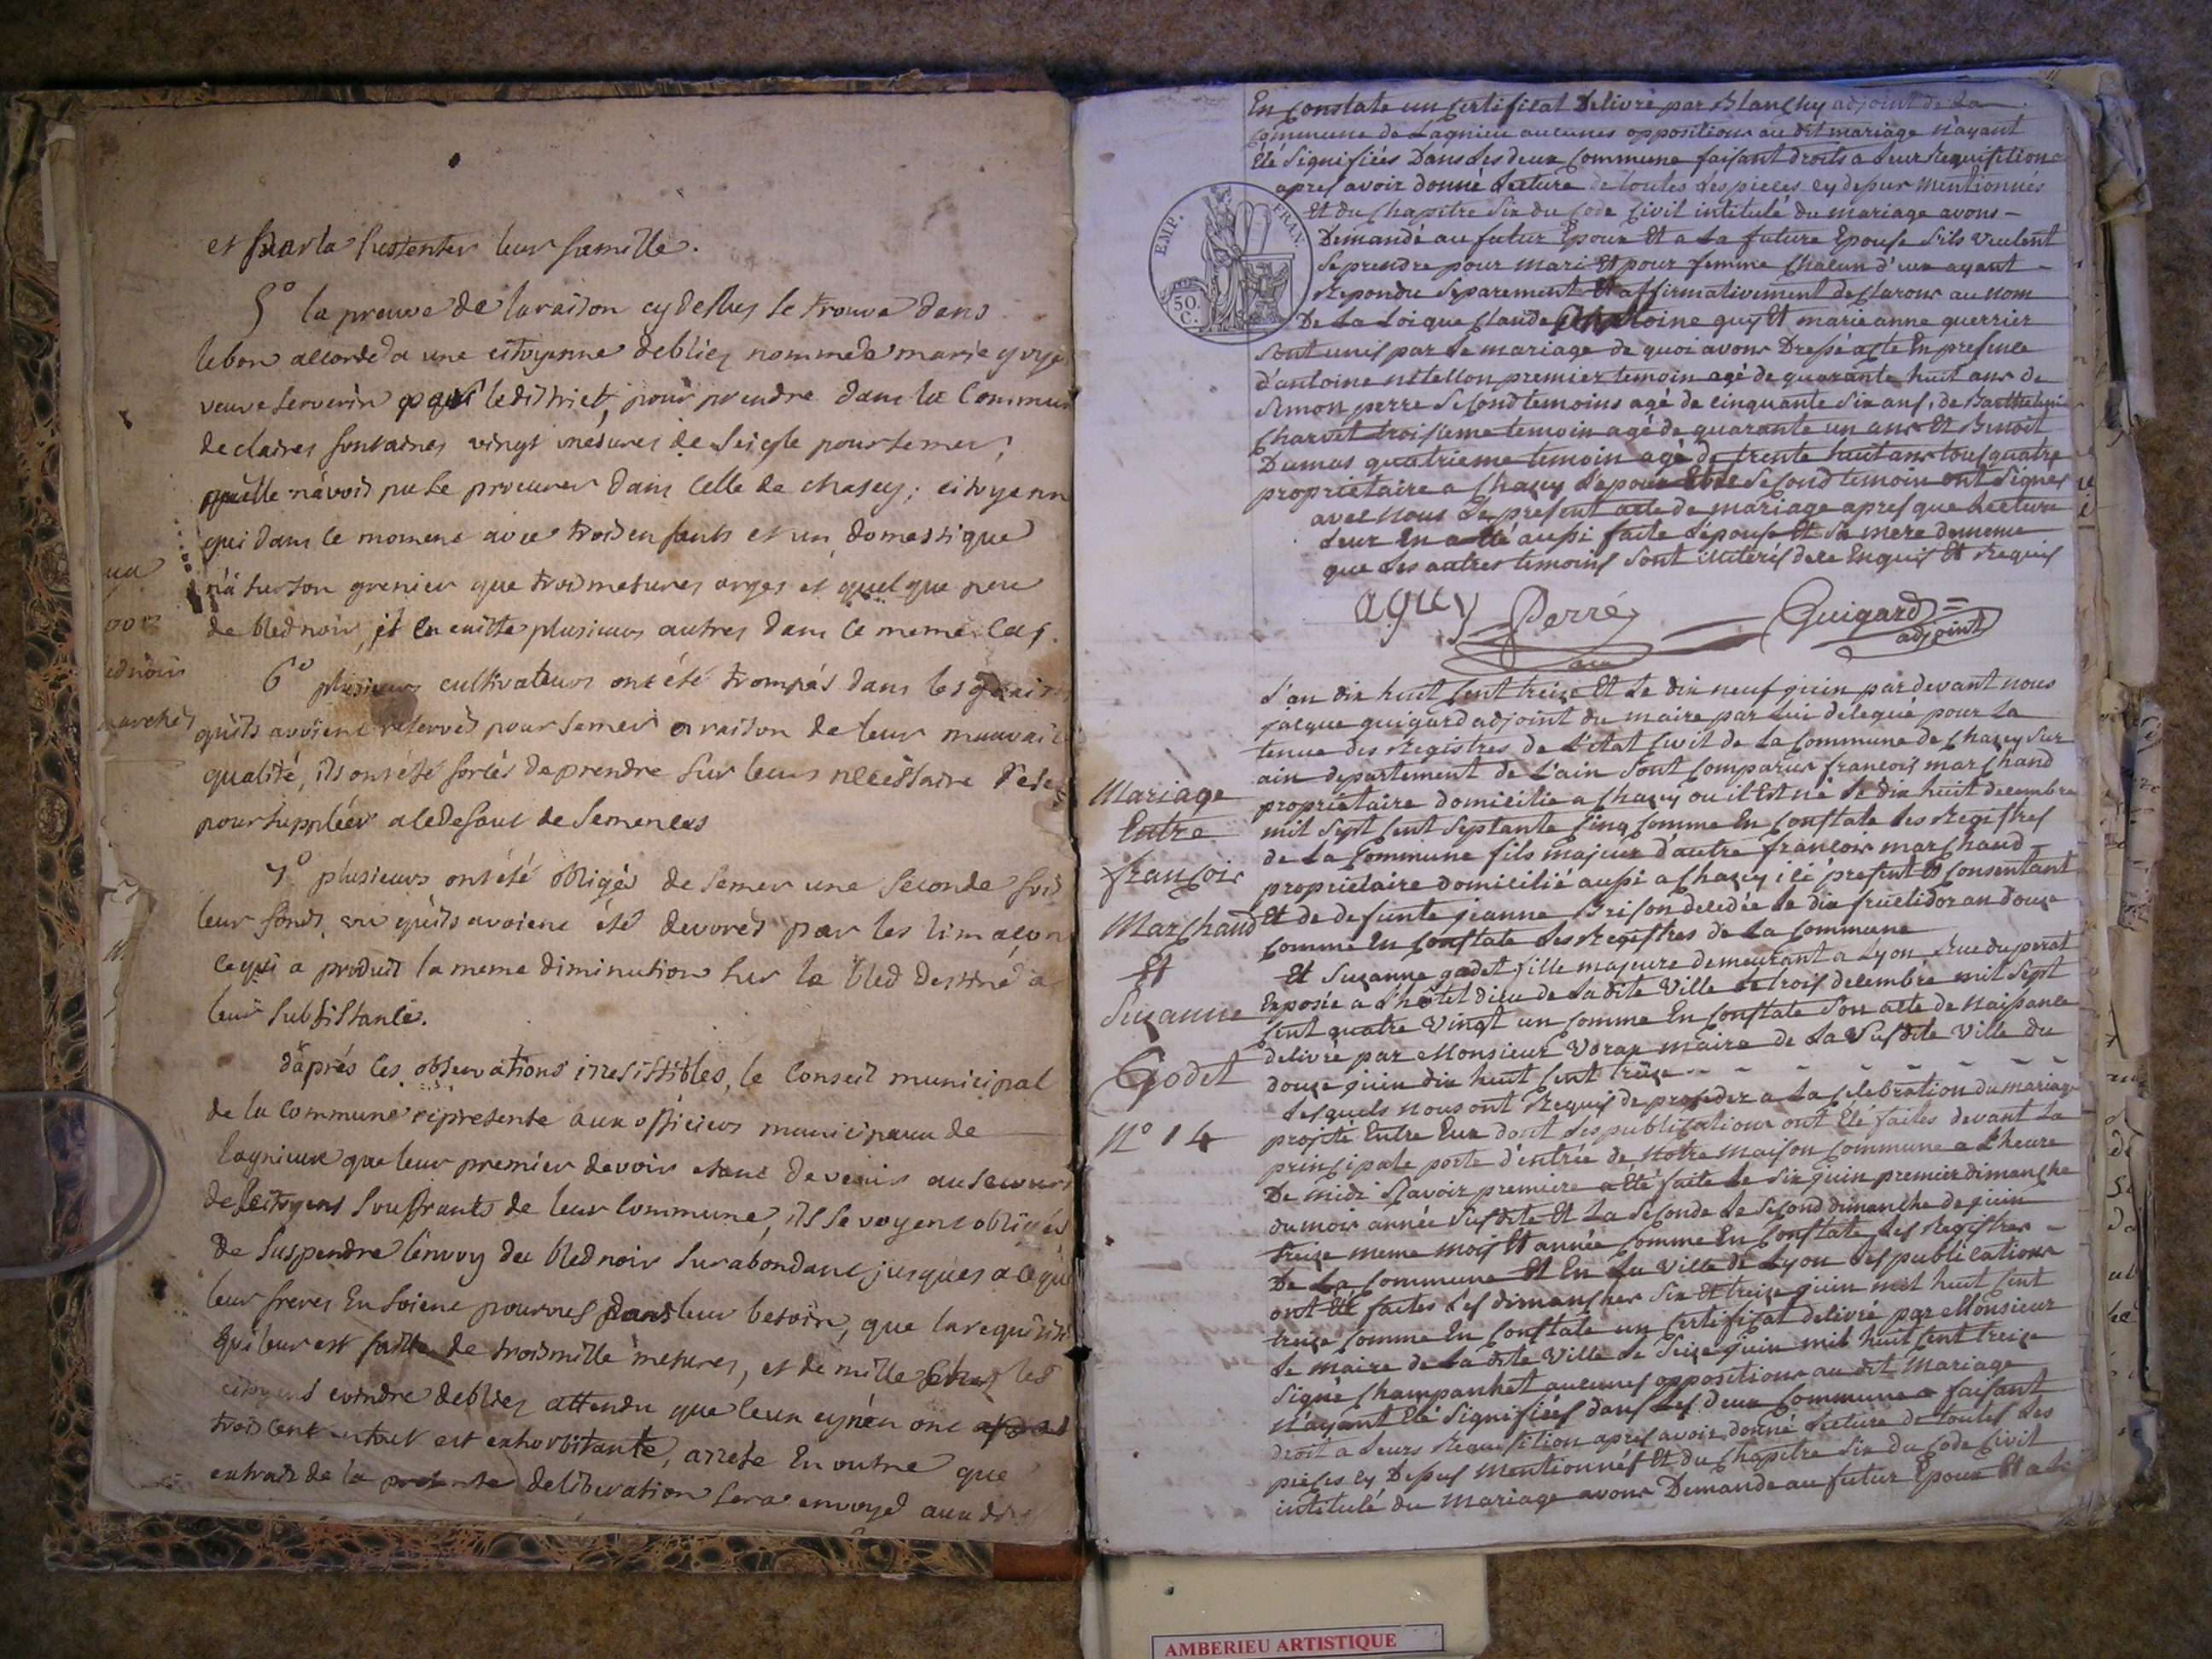 et par la sustenter leur famille.
5° la preuve de la raison cy dessus se trouve dans
le bon accordé a une citoyenne de blies nommée marie
veuve serverin par le district, pour prendre dans la Commun
de claires fontaines vingt mesures de Seigle pour semer,
quelle n'avoit pu se procurer dans celle de chasey; citoyenn
qui dans le moment avec trois enfants et un domestique
n'a sur son grenier que trois mesures orges et quelque peu
de bled noir, il en existe plusieurs autres dans le meme cas.
6° plusieurs cultivateurs ont été trompés dans les grains
qu'ils avoient reservés pour semer a raison de leur mauvaise
qualité, ils ont été forcés de prendre sur leurs necessaire
pour suppléer a le defaut de semences
7° plusieurs ont été obligés de semer une seconde fois
leur fonds, vu qu'ils avoient été devorés par les limaçon
ce qui a produit la meme diminution sur le bled destiné a
leur subsistance.
d'aprés ces observations irresistibles, le Conseil municipal
de la Commune represente aux officiers municipaux de
lagnieux que leur premier devoir etant de venir au secours
de citoyens souffrants de leur Commune, ils se voyent obligés
de suspendre l'envoy du bled noir surabondant jusques a ce que
leur freres En soient pourvus dans leur besoin, que la requisiti
qui leur est faitte de trois mille mesures, et de mille chez les
citoyens de blies attendu que ceux cy n'en ont
trois cent est exhorbitante, arrete En outre que
extrait de la presente deliberation sera envoyé aux
ednoir
marches
En Constate un Certificat Delivré par Blanchy adjoint de La
Commune de Lagnieu aucunes oppositions au dit mariage n'ayant
Eté Signifiées Dans Les deux Commune faisant droits a Leur Requisition
apres avoir donné Lecture de toutes Les pieces cy dessus mentionnés
Et du Chapitre Six du Code Civil intitulé du mariage avons –
Demandé au futur Epoux Et a La future Epouse S'ils veulent
Se prendre pour mari Et pour femme Chacun d'eux ayant –
Repondu Separement Et affirmativement declarons au nom
De La Loi que Claude Antoine guy Et marie anne guerrier
Sont unis par Le mariage de quoi avons Dressé acte En presence
d'antoine nétellon premier temoin agé de quarante huit ans de
Simon perre Second temoins agé de cinquante Six ans, de Barthelemi
Charvet troisieme temoin agé de quarante un ans Et Benoit
Dumas quatrieme temoin agé de trente huit ans tous quatre
proprietaire a Chazey L'epoux Et Le Second temoin ont Signés
avec Nous Le present acte de mariage apres que Lecture
Leur En a Eté aussi faite L'épouse Et Sa mere de meme
que Les autres temoins Sont illiterés de ce Enquis Et Requis
a guy Perré Guigard
adjoint
L'an dix huit Cent treize Et Le dix neuf juin par devant nous
jacque guigard adjoint du maire par Lui delegué pour La
tenue des Registres de L'état Civil de La Commune de Chazey Sur
ain departement de L'ain Sont Comparus francois marchand
proprietaire domicilié a Chazey ou il Est né Le dix huit decembre
mil Sept Cent Septante Cinq Comme En Constate Les Registres
de La Commune fils majeur d'autre francois marchand –
proprietaire domicilié aussi a Chazey ici present Et Consentant
Et de defunte jeanne Brison decedée Le dix fructidor an douze
Comme En Constate Les Registres de La Commune
Et Suzanne godet fille majeure demeurant a Lyon Rue du perat
Exposée a L'hôtel dieu de Ladite Ville Le trois decembre mil Sept
Cent quatre Vingt un Comme En Constate Son acte de Naissance
delivré par Monsieur Vorax maire de La Susdite Ville du
douze juin dix huit Cent treize - - - - - -
Lesquels nous ont Requis de proceder a La Célébration du mariage
projeté Entre Eux dont Les publications ont Eté faites devant La
principale porte d'entrée de Notre maison Commune a L'heure
De midi Scavoir premiere a Eté faite Le Six juin premier dimanche
du mois année Susdite Et La Seconde Le Second dimanche de juin
treize meme mois Et année Comme En Constate Les Registres –
De La Commune Et En La Ville de Lyon Les publications
ont Eté faites Les dimanches Six Et treize juin mil huit Cent
treize Comme En Constate un Certificat delivré par Monsieur
Le maire de La dite Ville Le Seize juin mil huit Cent treize
Signé Champanhet aucunes oppositions au dit Mariage
N'ayant Eté Signifiées dans Les deux Commune faisant
droit a Leurs Requisition apres avoir donné Lecture de toutes Les
pieces cy Dessus Mentionnées Et du Chapitre Six du Code Civil
intitulé du Mariage avons Demandé au futur Epoux Et a La
Mariage
Entre
francois
Marchand
Et
Suzanne
Godet
N° 14
EMP. FRAN.
50 C.
AMBERIEU ARTISTIQUE